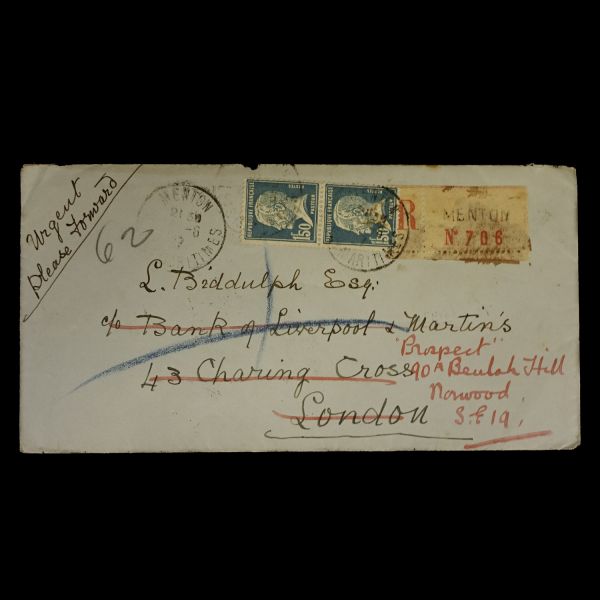 Urgent
please Forward
62
MENTON
21 50
-6
MARITIMES
REPUBLIQUE FRANÇAISE
1F50
REPUBLIQUE FRANÇAISE
1F50
R
MENTON
N° 706
L. Biddulph Esq:
c/o Bank of Liverpool & Martin's
43 Charing Cross
London
"Prospect"
90A Beulah Hill
Norwood
S.E 19.